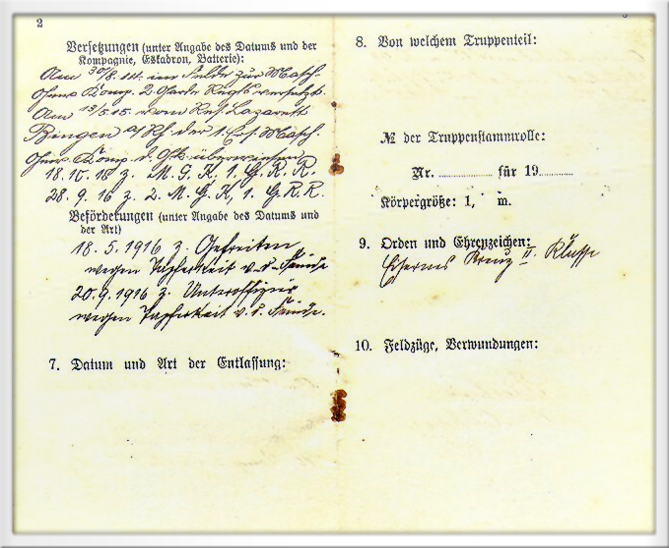 2
Versetzungen (unter Angabe des Datums und der
Kompagnie, Eskadron, Batterie):
Am 30/8. im Felde zur Masch.
Gew. Komp. 2. Garde Regts versetzt.
Am 13/5.15. vom Res. Lazarett
Bingen a/Rh. der 1. Ers. Masch.
Gew. Komp. d. G. überwiesen
18. 16 z. M. G. K. 1. G. R. R.
28. 9. 16 z. 2. M. G. K, 1. G. R. R.
Beförderungen (unter Angabe des Datums und
der Art)
18. 5. 1916 z. Gefreiten
wegen Tapferkeit v. d. Feinde
20.9.1916 z. Unteroffizier
wegen Tapferkeit v. d. Feinde.
7. Datum und Art der Entlassung:
8. Von welchem Truppenteil:
№ der Truppenstammrolle:
Nr. für 19
Körpergröße: 1, m.
9. Orden und Ehrenzeichen:
Eisernes Kreuz II. Klasse
10. Feldzüge, Verwundungen: